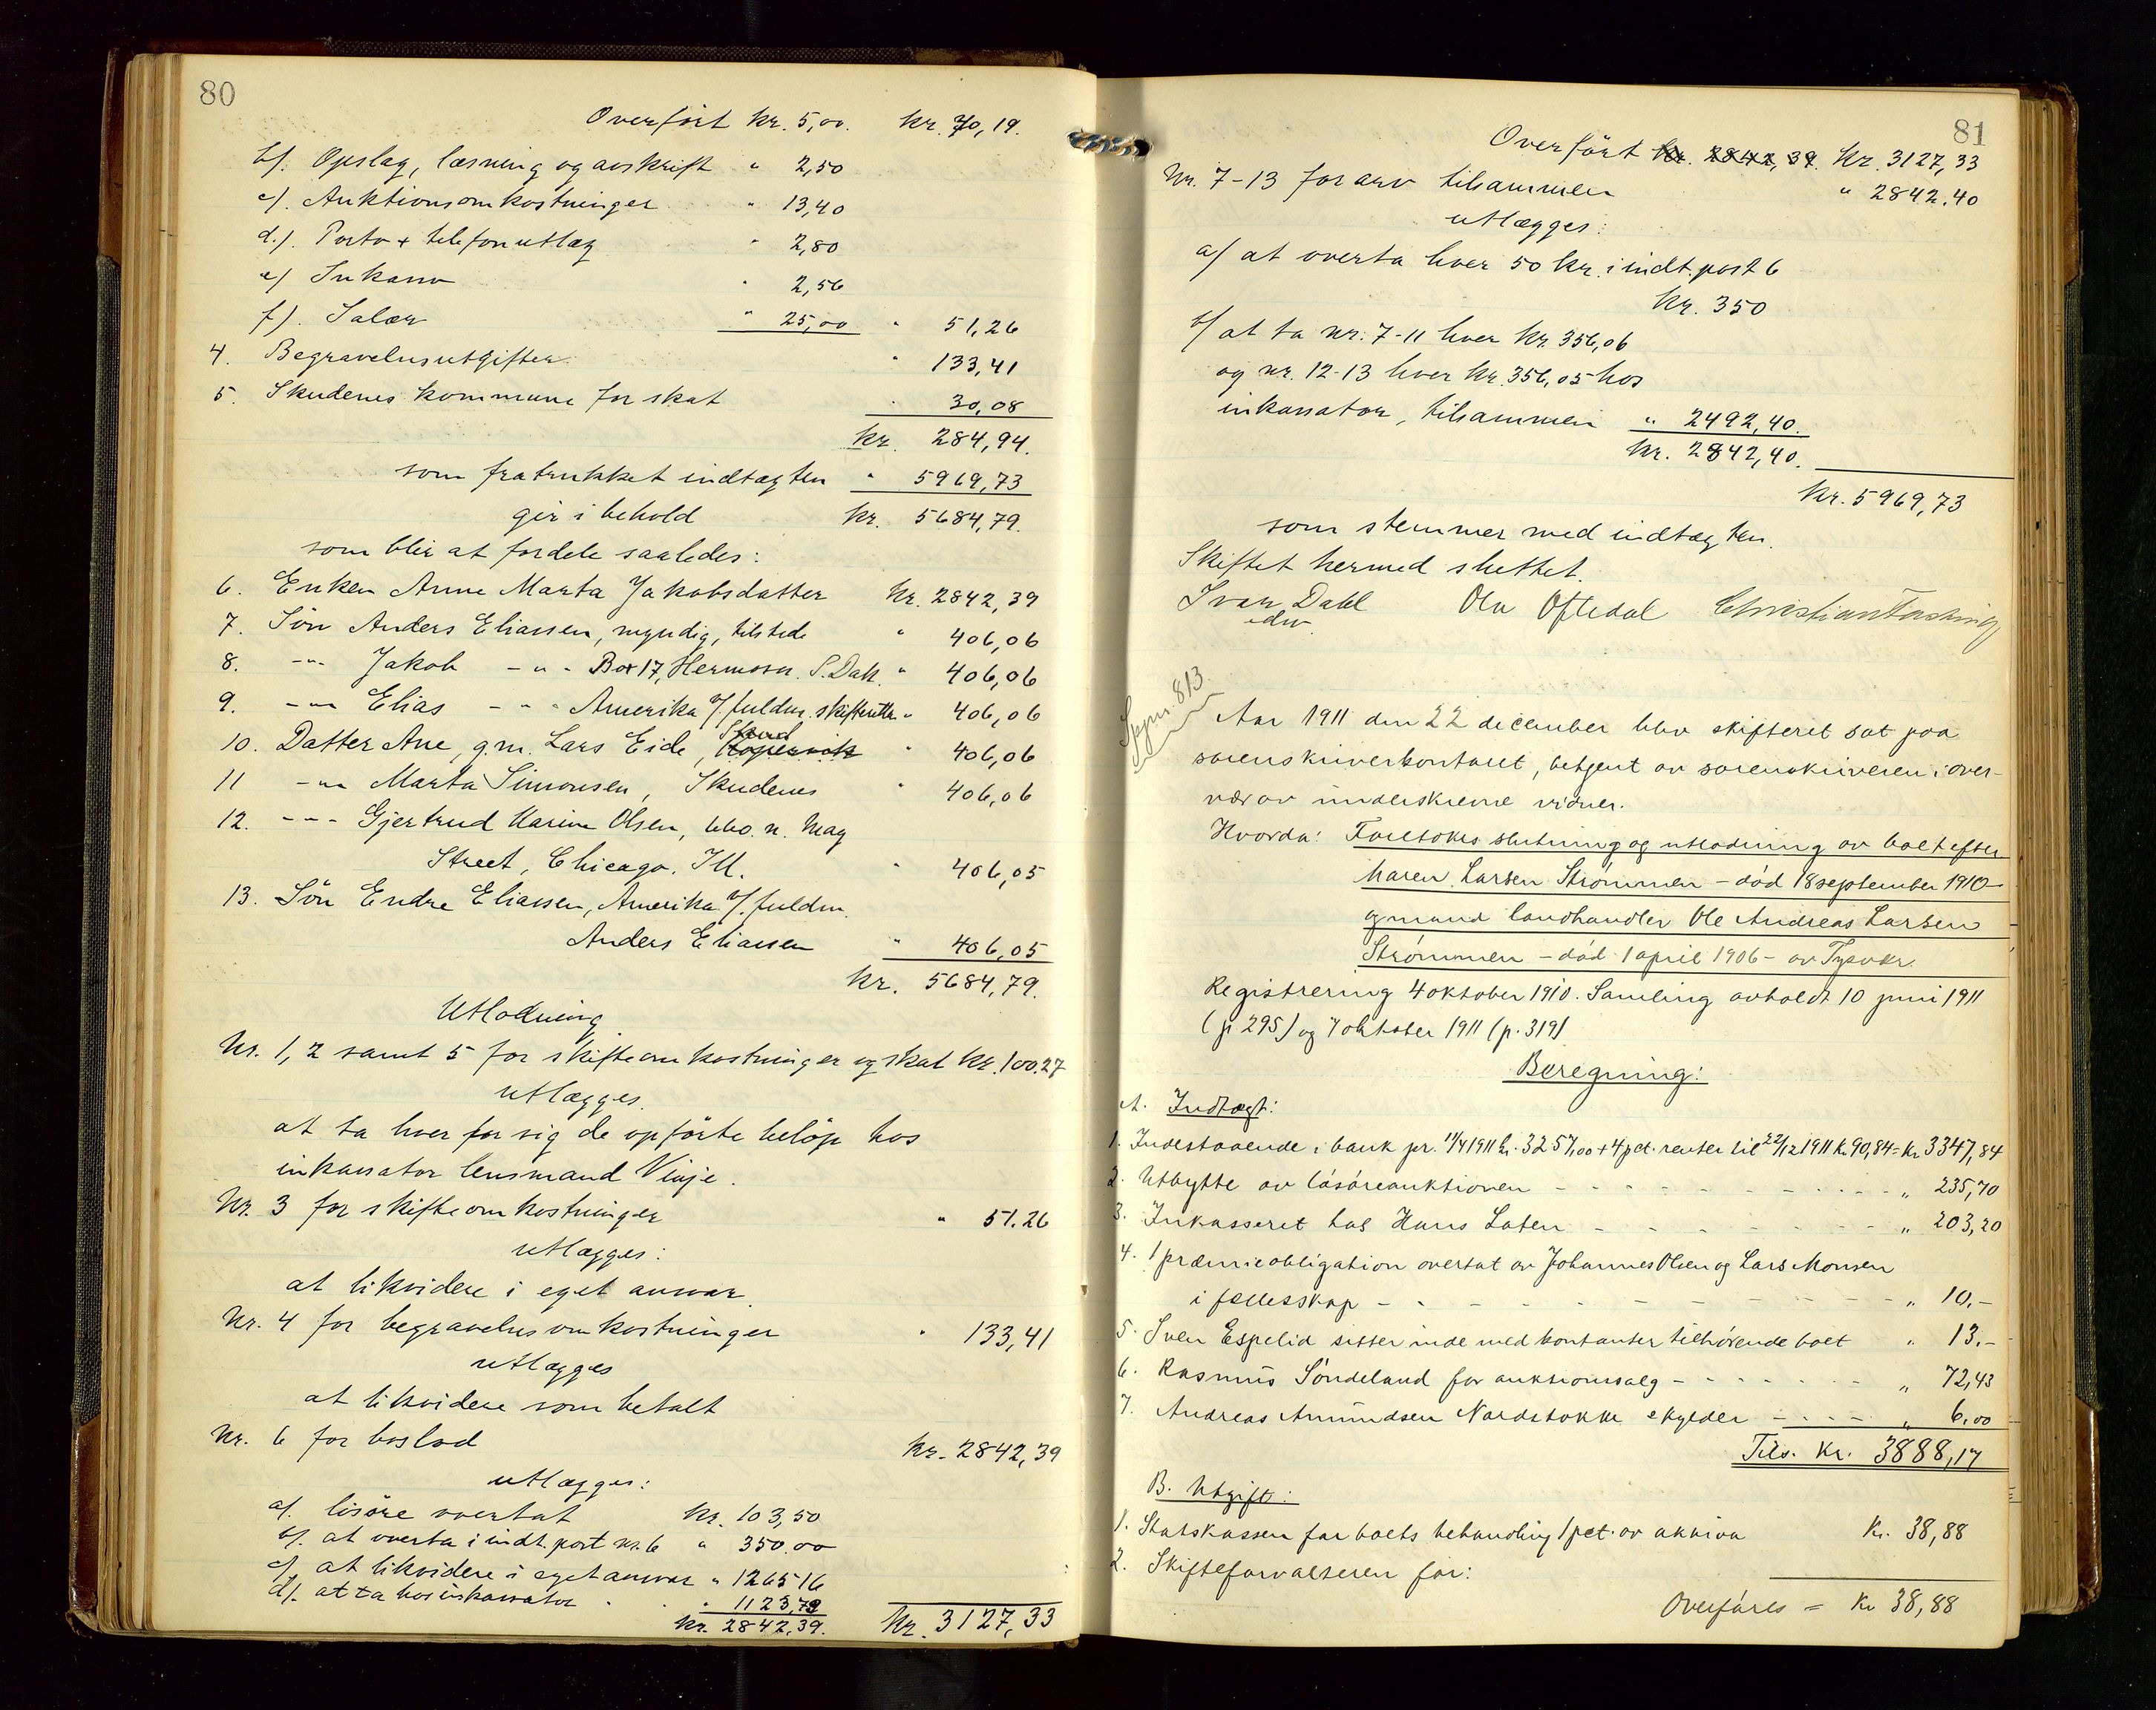 80
Overført kr. 5,00. kr. 70,19.
b). Opslag, læsning og avskrift " 2,50
c). Auktionsomkostninger " 13,40
d.). Porto + telefonutlæg " 2,80
e) Inkasso " 2,56
f). Salær " 25,00 " 51,26
4. Begravelsesutgifter " 133,41
5. Skudenes kommune for skat " 30,08
kr. 284,94.
som fratrukket indtægten " 5969,73
gir i behold kr. 5684,79.
som blir at fordele saaledes:
6. Enken Anne Marta Jakobsdatter kr. 2842,39
7. Søn Anders Eliassen, myndig, tilstede " 406,06
8. -"- Jakob -"- Box 17, Hermosa. S. Dak. " 406,06
9. -"- Elias -"- Amerika v/ fuldm. skifteretten " 406,06
10. Datter Ane, g.m. Lars Eide, Kopervik " 406,06
11 -"- Marta Simonsen, Skudenes " 406,06
12. -"- Gjertrud Karine Olsen, n. May
Street, Chicago. Ill. " 406,05
13. Søn Endre Eliassen, Amerika v/. fuldm.
Anders Eliassen " 406,05
kr. 5684,79.
Utlodning
Nr. 1, 2 samt 5 for skifteomkostninger og skat kr. 100.27
utlægges.
at ta hver for sig de opførte beløp hos
inkassator lensmand Vinje.
Nr. 3 for skifteomkostninger " 51.26
utlægges:
at likvidere i eget ansvar.
Nr. 4 for begravelsesomkostninger " 133,41
utlægges
at likvidere som betalt
Nr. 6 for boslod kr. 2842,39
utlægges:
a). løsøre overtat kr. 103,50
b). at overta i indt. post nr. 6 " 350.00
c). at likvidere i eget ansvar " 1265 16
d). at ta hos inkassator " 1123,73
kr. 2842,39. kr. 3127,33
81
Overført kr. 2842,39. kr. 3127,33
Nr. 7-13 for arv tilsammen " 2842.40
utlægges:
a) at overta hver 50 kr. i indt. post 6
kr. 350
b) at ta nr. 7-11 hver kr. 356,06
og nr. 12-13 hver kr. 356,05 hos
inkassator, tilsammen " 2492,40.
kr. 2842,40.
kr. 5969,73
som stemmer med indtægten.
Skiftet hermed sluttet.
Ivar Dahl Ola Oftedal Christian
edv.
813
Aar 1911 den 22 december blev skifteret sat paa
sorenskriverkontoret, betjent av sorenskriveren i over-
vær av underskrevne vidner.
Hvorda: Foretokes slutning og utlodning av boet efter
Maren Larsen Strømmen – død 18 september 1910 –
og mand landhandler Ole Andreas Larsen
Strømmen – død 1 april 1906 – av Tysvær.
Registrering 4 oktober 1910. Samling avholdt 10 juni 1911
(p 295) og 7 oktober 1911 (p. 319)
Beregning:
A. Indtægt:
1. Indestaaende i bank pr. 11/4 1911 kr. 3257,00 + 4 pct. renter til 22/12 1911 kr. 90,84 = kr 3347,84
2. Utbytte av løsøreauktionen - - - " 235,70
3. Inkasseret hos Hans Laten - - - " 203,20
4. 1 præmieobligation overtat av Johannes Olsen og Lars Monsen
i fællesskap - - - " 10,-
5. Sven Espelid sitter inde med kontanter tilhørende boet " 13.-
6. Rasmus Søndeland for auktionssalg - - - " 72,43
7. Andreas Amundsen Nordstokke skylder - - - " 6,00
Tils. kr. 3888,17
B. Utgift:
1. Statskassen for boets behandling 1 pct. av aktiva Kr. 38,88
2. Skifteforvalteren for:
Overføres = Kr 38,88